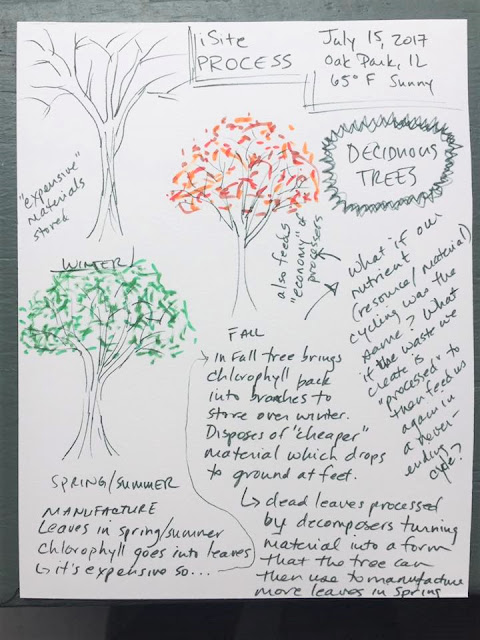 iSite
PROCESS
July 15, 2017
Oak Park, IL
65° F Sunny
DECIDUOUS
TREES
"expensive"
materials
stored
WINTER
also feeds
"economy" of
processers
What if our
nutrient
(resource/material)
cycling was the
same? What
if the waste we
create is
"processed" to
then feed us
again in
a never-
ending
cycle?
FALL
in Fall tree brings
chlorophyll back
into branches to
store over winter.
Disposes of "cheaper"
material which drops
to ground at feet.
↳ dead leaves processed
by decomposers turning
material into a form
that the tree can
then use to manufacture
more leaves in spring
SPRING/SUMMER
MANUFACTURE
Leaves in spring/summer
chlorophyll goes into leaves
↳ it's expensive so...